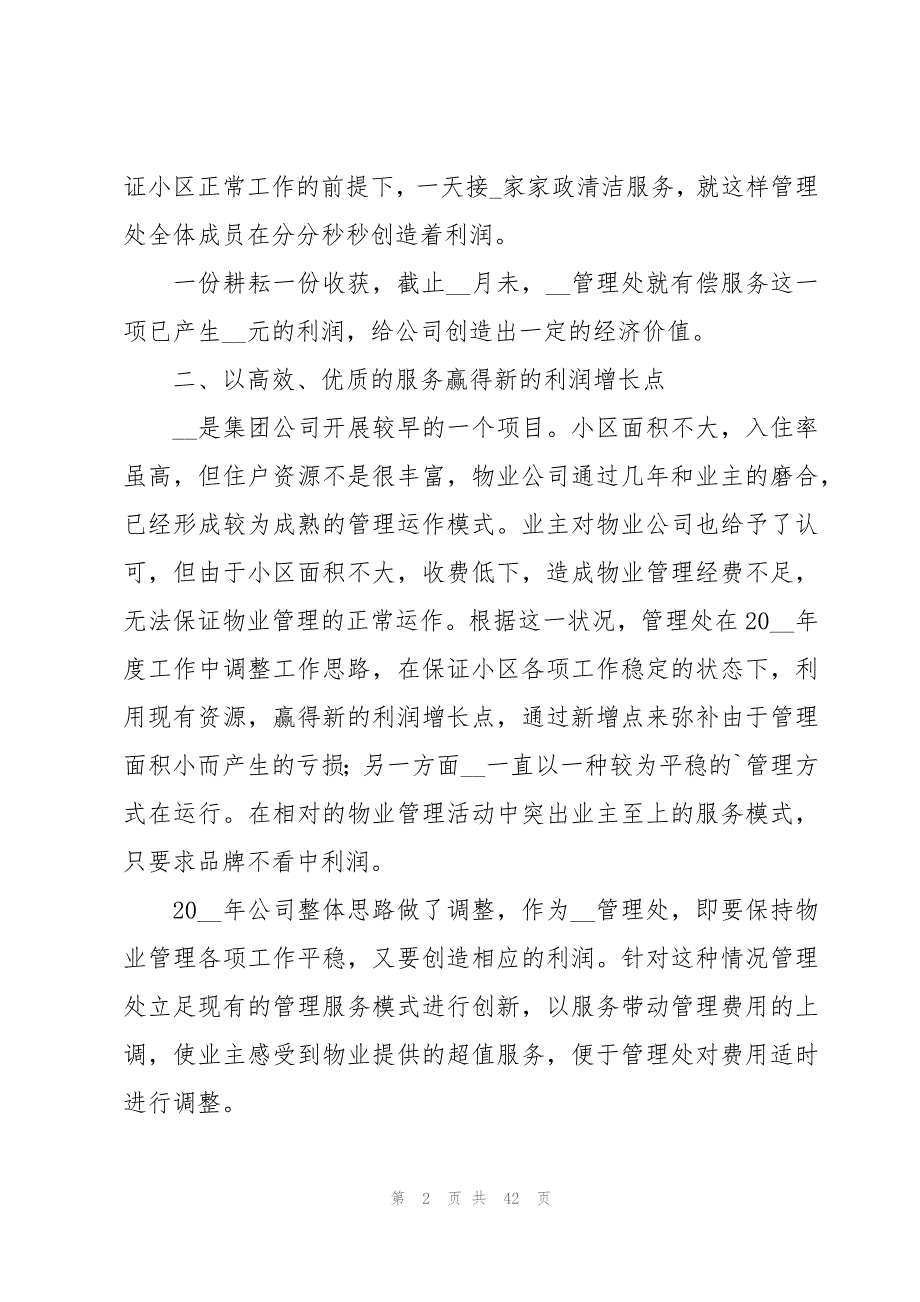 证小区正常工作的前提下，一天接_家家政清洁服务，就这样管理
处全体成员在分分秒秒创造着利润。
一份耕耘一份收获，截止__月未，__管理处就有偿服务这一
项已产生__元的利润，给公司创造出一定的经济价值。
二、以高效、优质的服务赢得新的利润增长点
__是集团公司开展较早的一个项目。小区面积不大，入住率
虽高，但住户资源不是很丰富，物业公司通过几年和业主的磨合，
已经形成较为成熟的管理运作模式。业主对物业公司也给予了认
可，但由于小区面积不大，收费低下，造成物业管理经费不足，
无法保证物业管理的正常运作。根据这一状况，管理处在 20__年
度工作中调整工作思路，在保证小区各项工作稳定的状态下，利
用现有资源，赢得新的利润增长点，通过新增点来弥补由于管理
面积小而产生的亏损；另一方面__一直以一种较为平稳的`管理方
式在运行。在相对的物业管理活动中突出业主至上的服务模式，
只要求品牌不看中利润。
20__年公司整体思路做了调整，作为__管理处，即要保持物
业管理各项工作平稳，又要创造相应的利润。针对这种情况管理
处立足现有的管理服务模式进行创新，以服务带动管理费用的上
调，使业主感受到物业提供的超值服务，便于管理处对费用适时
进行调整。
第 2 页 共 42 页